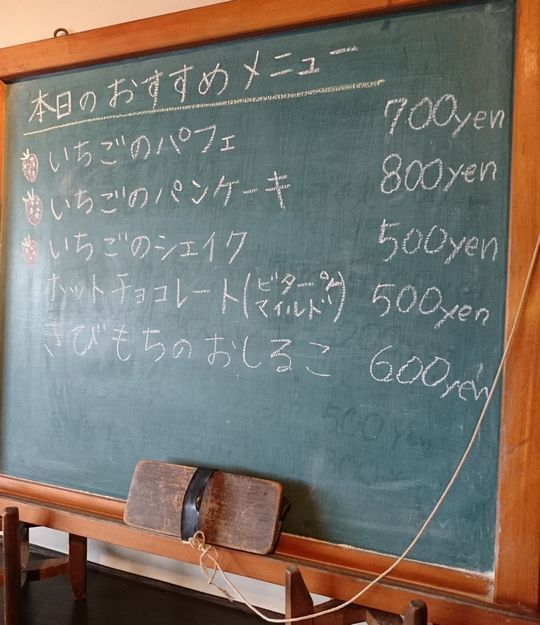 本日のおすすめメニュー
いちごのパフェ 700yen
いちごのパンケーキ 800yen
いちごのシェイク 500yen
ホットチョコレート(ビター マイルド) 500yen
きびもちのおしるこ 600yen
500yen